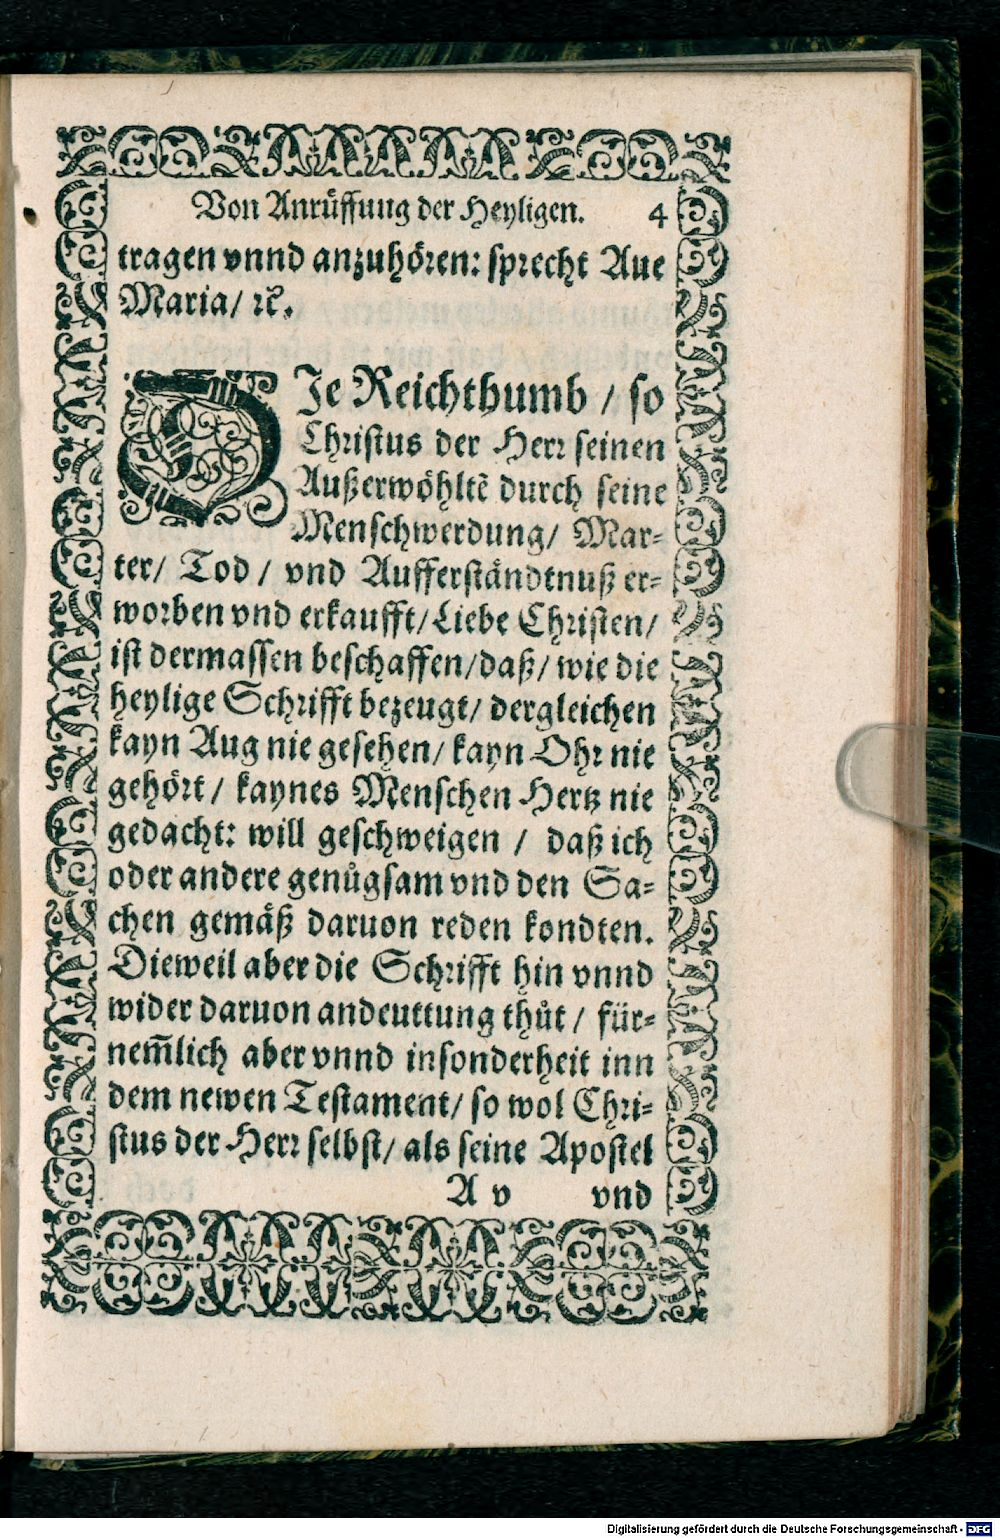 Von Anrüffung der Heyligen. 4
tragen vnnd anzuhören: sprecht Aue
Maria/ ꝛc̃.
DIe Reichthumb / so
Christus der Herr seinen
Außerwöhltẽ durch seine
Menschwerdung/ Mar-
ter/ Tod / vnd Aufferständtnuß er-
worben vnd erkaufft/ Liebe Christen/
ist dermassen beschaffen/ daß/ wie die
heylige Schrifft bezeugt/ dergleichen
kayn Aug nie gesehen/ kayn Ohr nie
gehört / kaynes Menschen Hertz nie
gedacht: will geschweigen / daß ich
oder andere genůgsam vnd den Sa-
chen gemäß daruon reden kondten.
Dieweil aber die Schrifft hin vnnd
wider daruon andeuttung thůt / für-
nem̃lich aber vnnd insonderheit inn
dem newen Testament/ so wol Chri-
stus der Herr selbst/ als seine Apostel
A v vnd
Digitalisierung gefördert durch die Deutsche Forschungsgemeinschaft - DFG